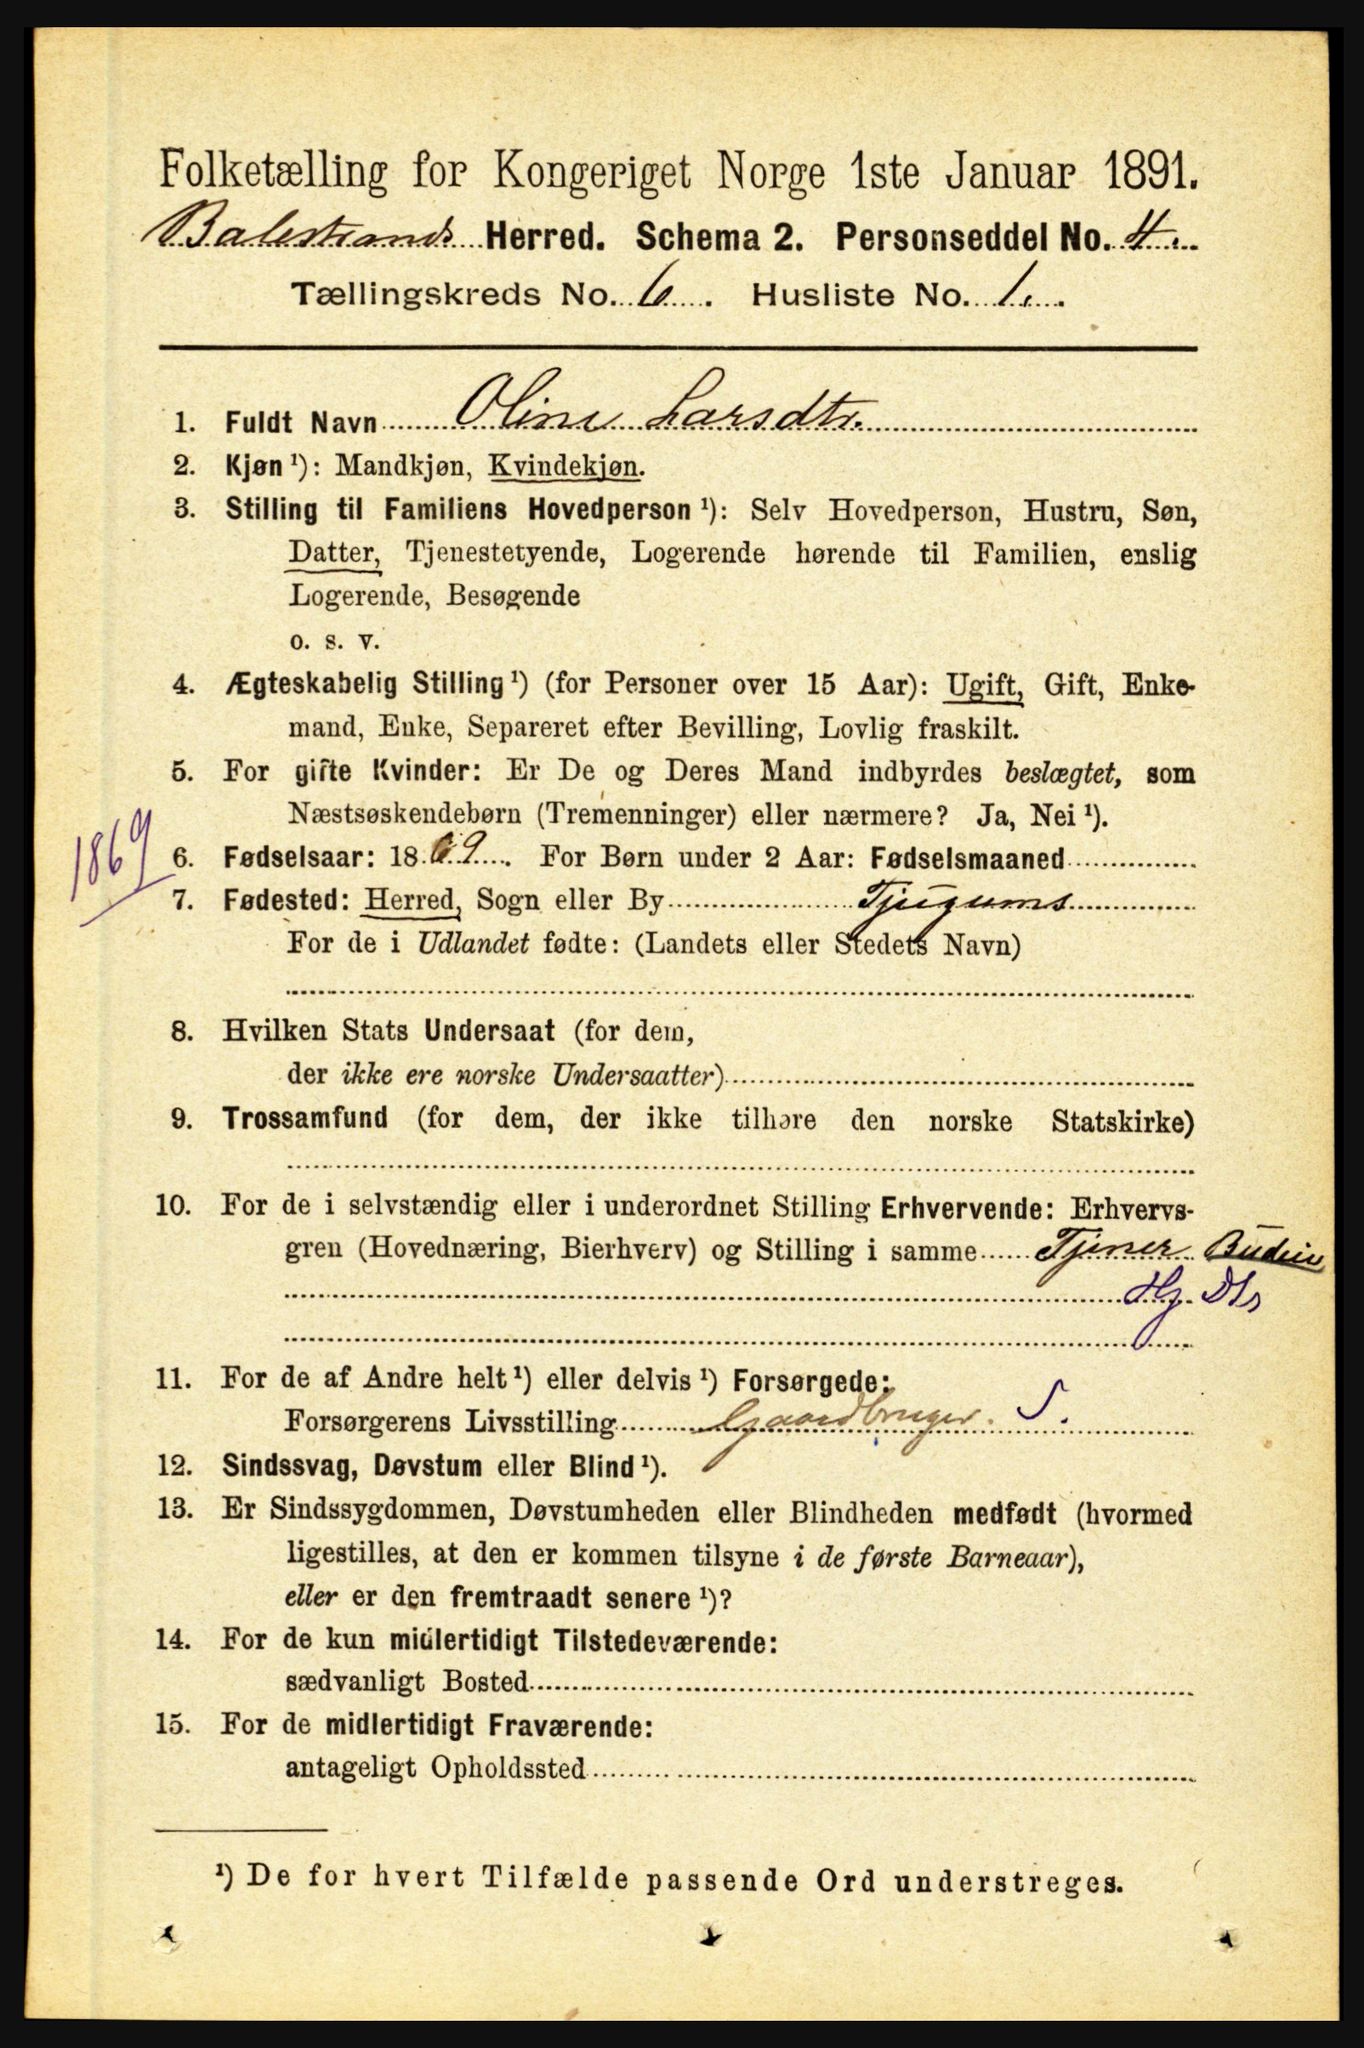 Folketælling for Kongeriget Norge 1ste Januar 1891.
Balestrands Herred. Schema 2. Personseddel No. 4.
Tællingskreds No. 6. Husliste No. 1.
1. Fuldt Navn Oline Larsdtr.
2. Kjøn ¹): Mandkjøn, Kvindekjøn.
3. Stilling til Familiens Hovedperson ¹): Selv Hovedperson, Hustru, Søn,
Datter, Tjenestetyende, Logerende hørende til Familien, enslig
Logerende, Besøgende
o. s. v.
4. Ægteskabelig Stilling ¹) (for Personer over 15 Aar): Ugift, Gift, Enke-
mand, Enke, Separeret efter Bevilling, Lovlig fraskilt.
5. For gifte Kvinder: Er De og Deres Mand indbyrdes beslægtet, som
Næstsøskendebørn (Tremenninger) eller nærmere? Ja, Nei ¹).
1869
6. Fødselsaar: 1869. For Børn under 2 Aar: Fødselsmaaned
7. Fødested: Herred, Sogn eller By Tjugums
For de i Udlandet fødte: (Landets eller Stedets Navn)
8. Hvilken Stats Undersaat (for dem,
der ikke ere norske Undersaatter)
9. Trossamfund (for dem, der ikke tilhøre den norske Statskirke)
10. For de i selvstændig eller i underordnet Stilling Erhvervende: Erhvervs-
gren (Hovednæring, Bierhverv) og Stilling i samme Tjener Budeie
Hj. Dtr
11. For de af Andre helt ¹) eller delvis ¹) Forsørgede:
Forsørgerens Livsstilling Gaardbruger. S.
12. Sindssvag, Døvstum eller Blind ¹).
13. Er Sindssygdommen, Døvstumheden eller Blindheden medfødt (hvormed
ligestilles, at den er kommen tilsyne i de første Barneaar),
eller er den fremtraadt senere ¹)?
14. For de kun midlertidigt Tilstedeværende:
sædvanligt Bosted
15. For de midlertidigt Fraværende:
antageligt Opholdssted
¹) De for hvert Tilfælde passende Ord understreges.